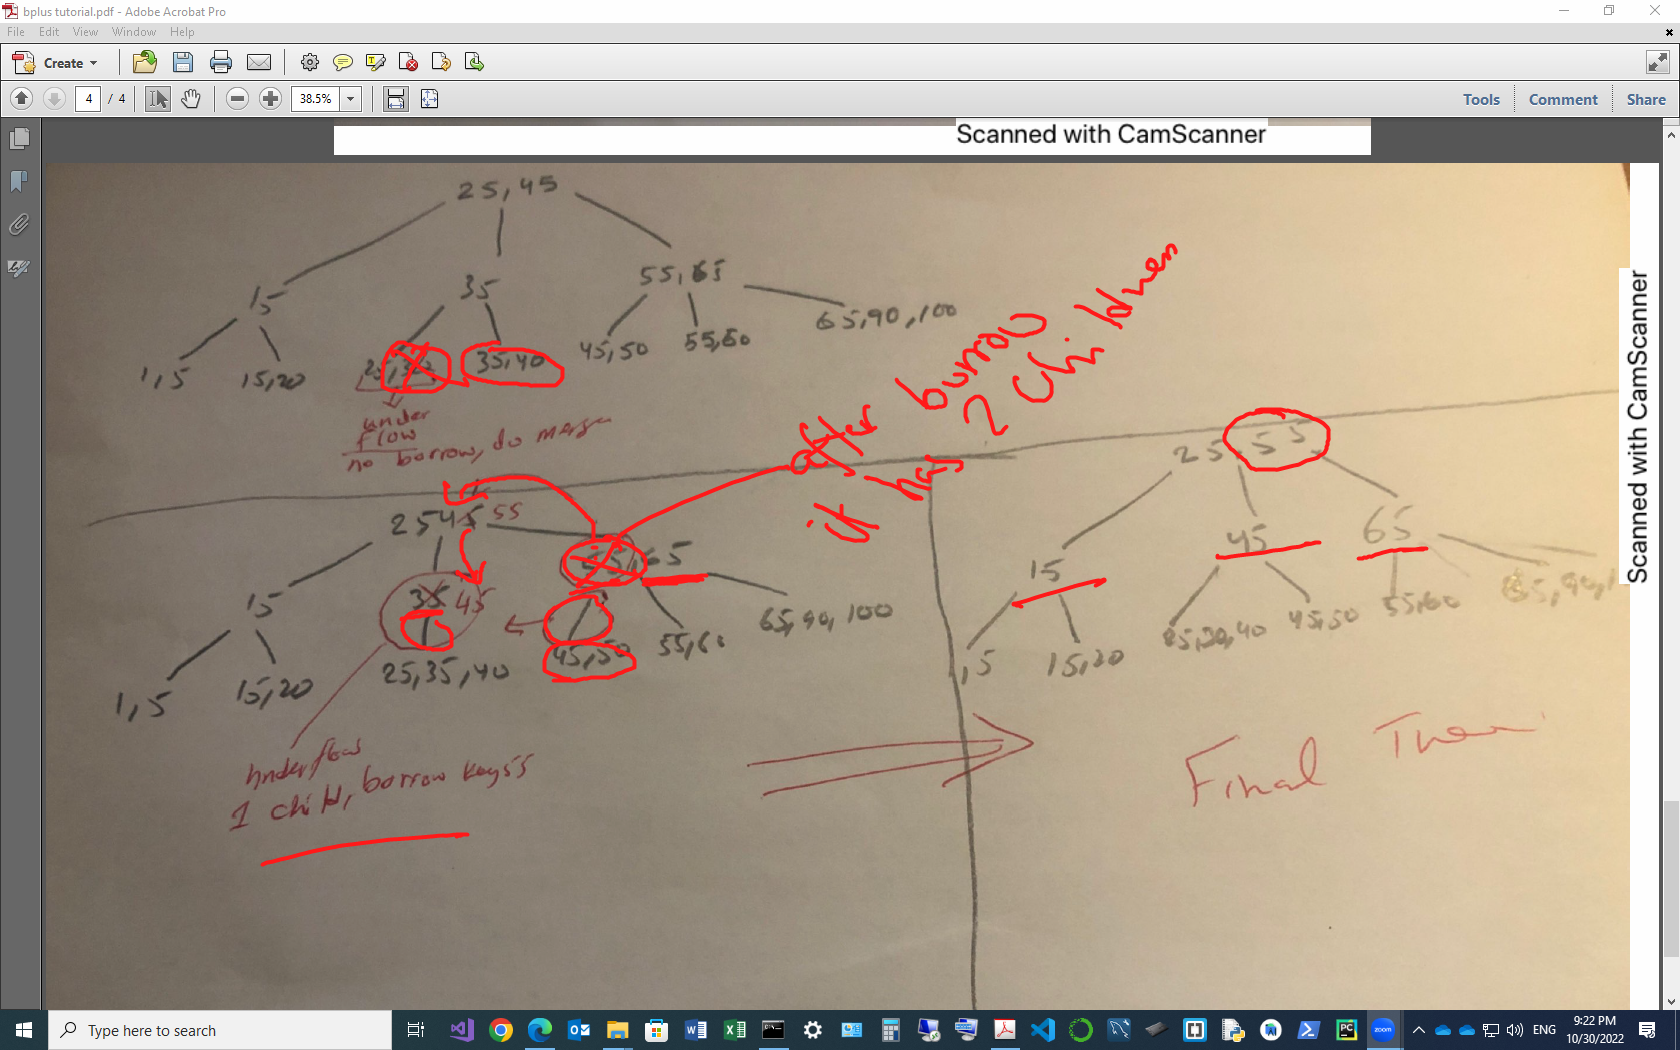 bplus tutorial.pdf - Adobe Acrobat Pro
File Edit View Window Help
Create
4 / 4 38.5%
Tools Comment Share
Scanned with CamScanner
25,45
15 35 55,65
1,5 15,20 35,40 45,50 55,60 65,90,100
under
flow
no borrow, do merge
after borrow
it has 2 children
25 45 55
15 35 45 65
1,5 15,20 25,35,40 45,50 55,60 65,90,100
underflow
1 child, borrow key 55
25,55
15 45 65
,5 15,20 25,30,40 45,50 55,60
Final
Scanned with CamScanner
Type here to search
ENG
9:22 PM
10/30/2022
zoom